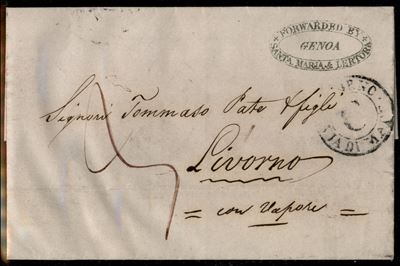 FORWARDED BY
GENOA
SANTA MARIA & LERTORA
Signori Tommaso Pate & figli
Livorno
= con Vapore =